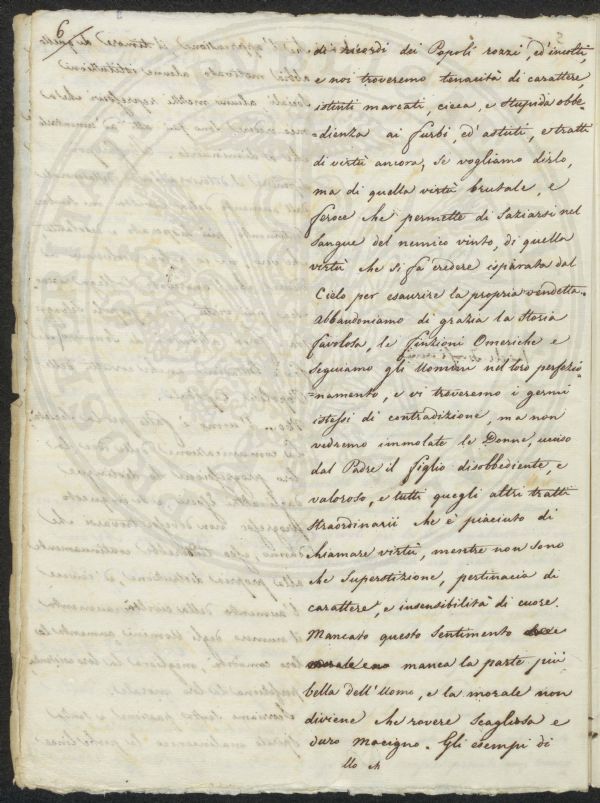 6
di ricordi dei Popoli rozzi, ed'incolti,
e noi troveremo tenacità di carattere,
istinti marcati, cieca, e stupida obbe=
=dienza ai furbi, ed'astuti, e tratti
di virtù ancora, se vogliamo dirlo,
ma di quella virtù brutale, e
feroce che permette di saziarsi nel
sangue del nemico vinto, di quella
virtù che si fa credere ispirata dal
Cielo per esaurire la propria vendetta.
Abbandoniamo di grazia la Storia
favolosa, le finzioni Omeriche e
seguiamo gli Uomini nel loro perfezio=
=namento, e vi troveremo i germi
istessi di contradizione, ma non
vedremo immolate le Donne, ucciso
dal Padre il figlio disobbediente, e
valoroso, e tutti quegli altri tratti
straordinarii che è piaciuto di
chiamare virtù, mentre non sono
che Superstizione, pertinacia di
carattere, e insensibilità di cuore.
Mancato questo Sentimento
manca la parte più
bella dell'Uomo, e la morale non
diviene che rovere scaglioso e
duro Macigno. Gli esempi di